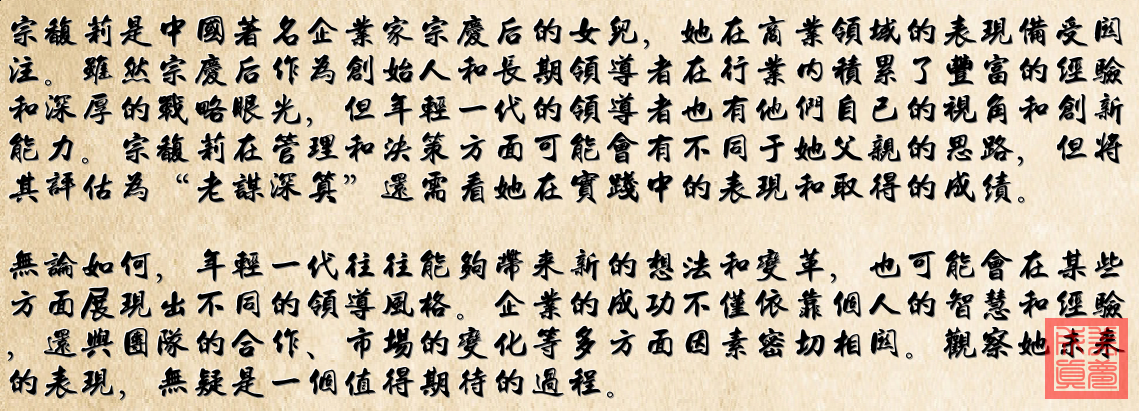 宗馥莉是中國著名企業家宗慶后的女兒，她在商業領域的表現備受関
注。雖然宗慶后作為創始人和長期領導者在行業内積累了豐富的經驗
和深厚的戰略眼光，但年輕一代的領導者也有他們自己的視角和創新
能力。宗馥莉在管理和決策方面可能會有不同于她父親的思路，但將
其評估為“老謀深算”還需看她在實踐中的表現和取得的成績。
無論如何，年輕一代往往能夠帶来新的想法和變革，也可能會在某些
方面展現出不同的領導風格。企業的成功不僅依靠個人的智慧和經驗
，還與團隊的合作、市場的變化等多方面因素密切相関。觀察她未来
的表現，無疑是一個值得期待的過程。